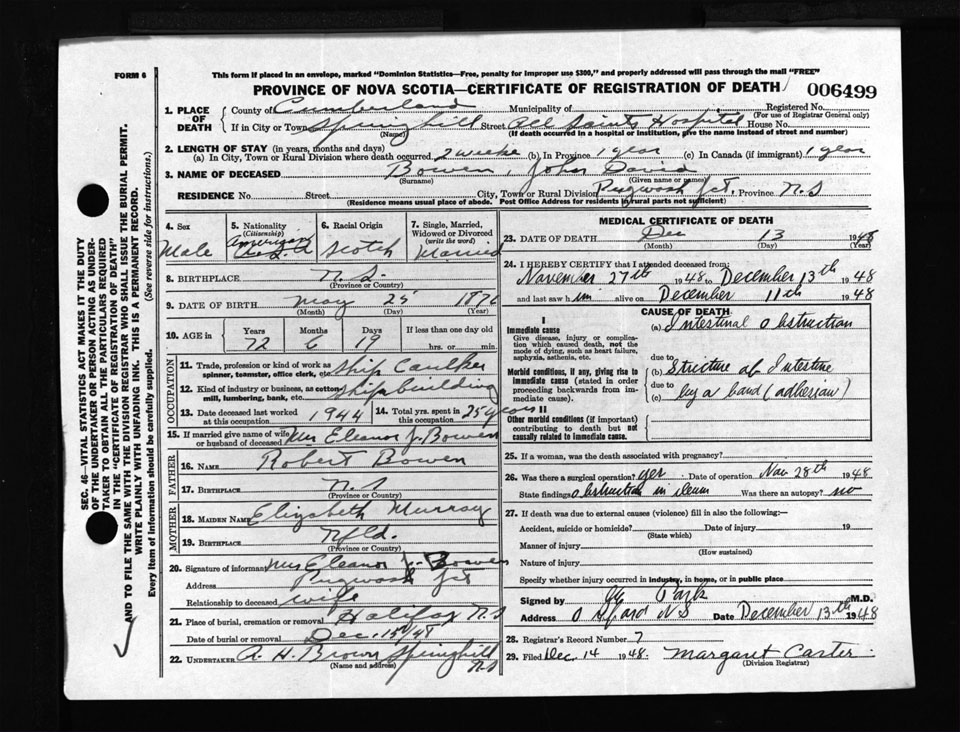 FORM 6
This form if placed in an envelope, marked "Dominion Statistics—Free, penalty for improper use $300," and properly addressed will pass through the mail "FREE"
PROVINCE OF NOVA SCOTIA—CERTIFICATE OF REGISTRATION OF DEATH
006499
1. PLACE OF DEATH County of Cumberland Municipality of Registered No.
(For use of Registrar General only)
If in City or Town Springhill Street All Saints Hospital House No.
(Name) (If death occurred in a hospital or institution, give the name instead of street and number)
2. LENGTH OF STAY (in years, months and days)
(a) In City, Town or Rural Division where death occurred 2 weeks (b) In Province 1 year (c) In Canada (if immigrant) 1 year
3. NAME OF DECEASED Bowen, John David
(Surname) (Given name or names)
RESIDENCE No. Street City, Town or Rural Division Pugwash Jct, Province N.S
(Residence means usual place of abode. Post Office Address for residents in rural parts not sufficient)
4. Sex Male
5. Nationality (Citizenship) American
6. Racial Origin Scotch
7. Single, Married, Widowed or Divorced (write the word) Married
8. BIRTHPLACE N.S.
(Province or Country)
9. DATE OF BIRTH May 25 1876
(Month) (Day) (Year)
10. AGE in Years Months Days If less than one day old
72 6 19 hrs. or min.
OCCUPATION
11. Trade, profession or kind of work as spinner, teamster, office clerk, etc. Ship Caulker
12. Kind of industry or business, as cotton mill, lumbering, bank, etc. Shipbuilding
13. Date deceased last worked at this occupation 1944 14. Total yrs. spent in this occupation 25 years
15. If married give name of wife or husband of deceased Mrs Eleanor J. Bowen
FATHER
16. NAME Robert Bowen
17. BIRTHPLACE N.S
(Province or Country)
MOTHER
18. MAIDEN NAME Elizabeth Murray
19. BIRTHPLACE Nfld.
(Province or Country)
20. Signature of informant Mrs Eleanor J. Bowen
Address Pugwash Jct
Relationship to deceased wife
21. Place of burial, cremation or removal Halifax N.S
Date of burial or removal Dec. 15th/48
22. UNDERTAKER A. H. Brown Springhill N.S
(Name and address)
MEDICAL CERTIFICATE OF DEATH
23. DATE OF DEATH Dec 13 1948
(Month) (Day) (Year)
24. I HEREBY CERTIFY that I attended deceased from:
November 27th 1948 to December 13th 1948
and last saw him alive on December 11th 1948
CAUSE OF DEATH
I
Immediate cause
Give disease, injury or complication which caused death, not the mode of dying, such as heart failure, asphyxia, asthenia, etc.
(a) Intestinal obstruction
due to
Morbid conditions, if any, giving rise to immediate cause (stated in order proceeding backwards from immediate cause).
(b) Stricture of Intestine
due to
(c) by a band (adhesion)
II
Other morbid conditions (if important) contributing to death but not causally related to immediate cause.
25. If a woman, was the death associated with pregnancy?
26. Was there a surgical operation? yes Date of operation Nov 28th 1948
State findings obstruction in ileum Was there an autopsy? no
27. If death was due to external causes (violence) fill in also the following:—
Accident, suicide or homicide? Date of injury 19
(State which)
Manner of injury
(How sustained)
Nature of injury
Specify whether injury occurred in industry, in home, or in public place
Signed by Park M.D.
Address Oxford NS Date December 13th 1948
28. Registrar's Record Number 7
29. Filed Dec. 14 1948. Margaret Carter
(Division Registrar)
SEC. 46—VITAL STATISTICS ACT MAKES IT THE DUTY
OF THE UNDERTAKER OR PERSON ACTING AS UNDER-
TAKER TO OBTAIN ALL THE PARTICULARS REQUIRED
IN THE "CERTIFICATE OF REGISTRATION OF DEATH"
AND TO FILE THE SAME WITH THE DIVISION REGISTRAR WHO SHALL ISSUE THE BURIAL PERMIT.
WRITE PLAINLY WITH UNFADING INK. THIS IS A PERMANENT RECORD.
Every item of Information should be carefully supplied. (See reverse side for instructions.)